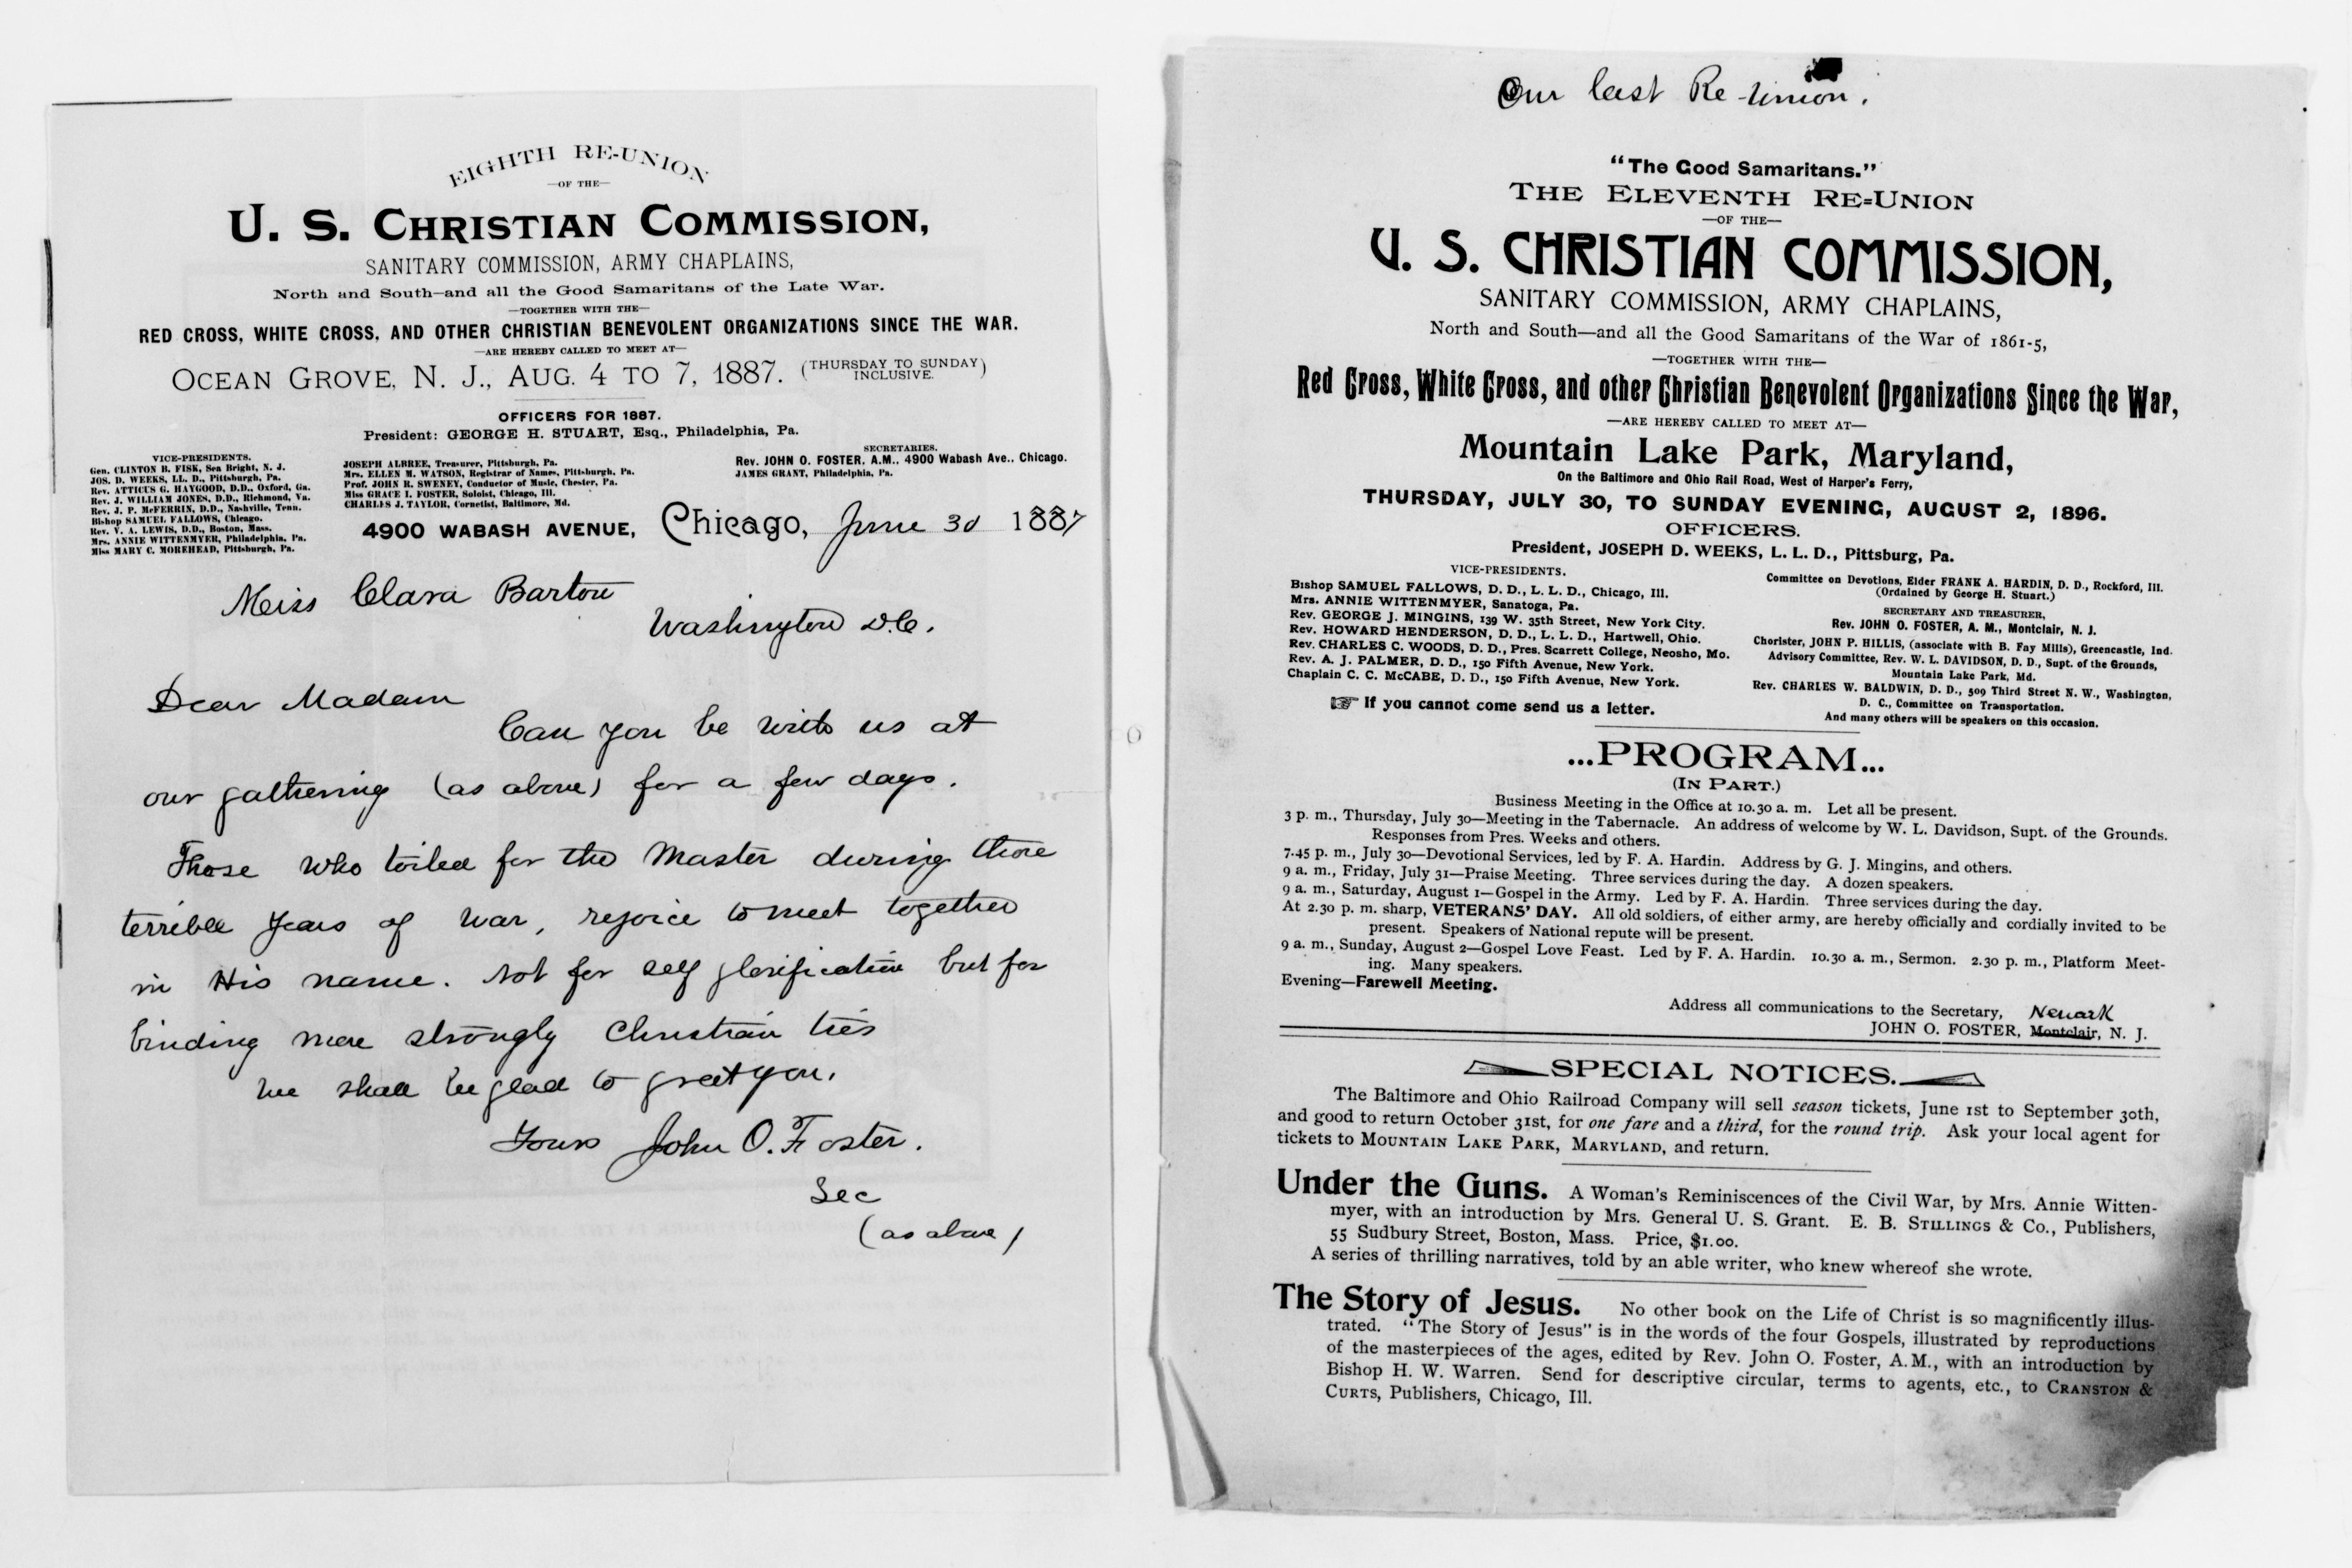 EIGHTH RE-UNION
—OF THE—
U. S. CHRISTIAN COMMISSION,
SANITARY COMMISSION, ARMY CHAPLAINS,
North and South—and all the Good Samaritans of the Late War.
—TOGETHER WITH THE—
RED CROSS, WHITE CROSS, AND OTHER CHRISTIAN BENEVOLENT ORGANIZATIONS SINCE THE WAR.
—ARE HEREBY CALLED TO MEET AT—
OCEAN GROVE, N. J., AUG. 4 TO 7, 1887. (THURSDAY TO SUNDAY INCLUSIVE.)
OFFICERS FOR 1887.
President: GEORGE H. STUART, Esq., Philadelphia, Pa.
VICE-PRESIDENTS.
Gen. CLINTON B. FISK, Sea Bright, N. J.
JOS. D. WEEKS, LL. D., Pittsburgh, Pa.
Rev. ATTICUS G. HAYGOOD, D.D., Oxford, Ga.
Rev. J. WILLIAM JONES, D.D., Richmond, Va.
Rev. J. P. McFERRIN, D.D., Nashville, Tenn.
Bishop SAMUEL FALLOWS, Chicago.
Rev. V. A. LEWIS, D.D., Boston, Mass.
Mrs. ANNIE WITTENMYER, Philadelphia, Pa.
Miss MARY C. MOREHEAD, Pittsburgh, Pa.
JOSEPH ALBREE, Treasurer, Pittsburgh, Pa.
Mrs. ELLEN M. WATSON, Registrar of Names, Pittsburgh, Pa.
Prof. JOHN R. SWENEY, Conductor of Music, Chester, Pa.
Miss GRACE I. FOSTER, Soloist, Chicago, Ill.
CHARLES J. TAYLOR, Cornetist, Baltimore, Md.
SECRETARIES.
Rev. JOHN O. FOSTER, A.M., 4900 Wabash Ave., Chicago.
JAMES GRANT, Philadelphia, Pa.
4900 WABASH AVENUE, Chicago, June 30 1887
Miss Clara Barton
Washington D.C.
Dear Madam
Can you be with us at
our gathering (as above) for a few days.
Those who toiled for the Master during those
terrible years of war, rejoice to meet together
in His name. Not for self glorification but for
binding more strongly Christian ties
We shall be glad to greet you.
Yours John O. Foster.
Sec
(as above)
Our last Re-Union.
"The Good Samaritans."
THE ELEVENTH RE=UNION
—OF THE—
U. S. CHRISTIAN COMMISSION,
SANITARY COMMISSION, ARMY CHAPLAINS,
North and South—and all the Good Samaritans of the War of 1861-5,
—TOGETHER WITH THE—
Red Cross, White Cross, and other Christian Benevolent Organizations Since the War,
—ARE HEREBY CALLED TO MEET AT—
Mountain Lake Park, Maryland,
On the Baltimore and Ohio Rail Road, West of Harper's Ferry,
THURSDAY, JULY 30, TO SUNDAY EVENING, AUGUST 2, 1896.
OFFICERS.
President, JOSEPH D. WEEKS, L. L. D., Pittsburg, Pa.
VICE-PRESIDENTS.
Bishop SAMUEL FALLOWS, D. D., L. L. D., Chicago, Ill.
Mrs. ANNIE WITTENMYER, Sanatoga, Pa.
Rev. GEORGE J. MINGINS, 139 W. 35th Street, New York City.
Rev. HOWARD HENDERSON, D. D., L. L. D., Hartwell, Ohio.
Rev. CHARLES C. WOODS, D. D., Pres. Scarrett College, Neosho, Mo.
Rev. A. J. PALMER, D. D., 150 Fifth Avenue, New York.
Chaplain C. C. McCABE, D. D., 150 Fifth Avenue, New York.
☞ If you cannot come send us a letter.
Committee on Devotions, Elder FRANK A. HARDIN, D. D., Rockford, Ill.
(Ordained by George H. Stuart.)
SECRETARY AND TREASURER,
Rev. JOHN O. FOSTER, A. M., Montclair, N. J.
Chorister, JOHN P. HILLIS, (associate with B. Fay Mills), Greencastle, Ind.
Advisory Committee, Rev. W. L. DAVIDSON, D. D., Supt. of the Grounds,
Mountain Lake Park, Md.
Rev. CHARLES W. BALDWIN, D. D., 509 Third Street N. W., Washington,
D. C., Committee on Transportation.
And many others will be speakers on this occasion.
...PROGRAM...
(IN PART.)
Business Meeting in the Office at 10.30 a. m. Let all be present.
3 p. m., Thursday, July 30—Meeting in the Tabernacle. An address of welcome by W. L. Davidson, Supt. of the Grounds.
Responses from Pres. Weeks and others.
7.45 p. m., July 30—Devotional Services, led by F. A. Hardin. Address by G. J. Mingins, and others.
9 a. m., Friday, July 31—Praise Meeting. Three services during the day. A dozen speakers.
9 a. m., Saturday, August 1—Gospel in the Army. Led by F. A. Hardin. Three services during the day.
At 2.30 p. m. sharp, VETERANS' DAY. All old soldiers, of either army, are hereby officially and cordially invited to be
present. Speakers of National repute will be present.
9 a. m., Sunday, August 2—Gospel Love Feast. Led by F. A. Hardin. 10.30 a. m., Sermon. 2.30 p. m., Platform Meet-
ing. Many speakers.
Evening—Farewell Meeting.
Address all communications to the Secretary, Newark
JOHN O. FOSTER, Montclair, N. J.
SPECIAL NOTICES.
The Baltimore and Ohio Railroad Company will sell season tickets, June 1st to September 30th,
and good to return October 31st, for one fare and a third, for the round trip. Ask your local agent for
tickets to MOUNTAIN LAKE PARK, MARYLAND, and return.
Under the Guns. A Woman's Reminiscences of the Civil War, by Mrs. Annie Witten-
myer, with an introduction by Mrs. General U. S. Grant. E. B. STILLINGS & Co., Publishers,
55 Sudbury Street, Boston, Mass. Price, $1.00.
A series of thrilling narratives, told by an able writer, who knew whereof she wrote.
The Story of Jesus. No other book on the Life of Christ is so magnificently illus-
trated. "The Story of Jesus" is in the words of the four Gospels, illustrated by reproductions
of the masterpieces of the ages, edited by Rev. John O. Foster, A.M., with an introduction by
Bishop H. W. Warren. Send for descriptive circular, terms to agents, etc., to CRANSTON &
CURTS, Publishers, Chicago, Ill.